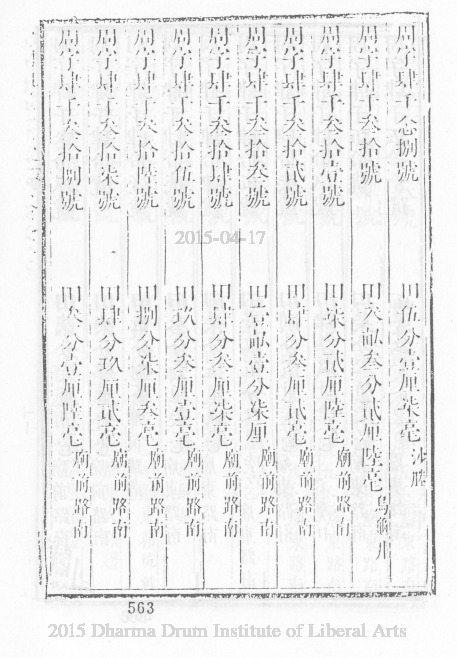 周字肆千念捌號 田伍分壹厘柒亳
周字肆千叁拾號 田叁畝叁分貳厘陸亳
周字肆千叁拾壹號 田柒分貳厘陸亳 廟前路南
周字肆千叁拾貳號 田肆分叁厘貳亳 廟前路南
周字肆千叁拾叁號 田壹畝壹分柒厘 廟前路南
周字肆千叁拾肆號 田肆分叁厘柒亳 廟前路南
周字肆千叁拾伍號 田玖分叁厘壹亳 廟前路南
周字肆千叁拾陸號 田捌分柒厘叁亳 廟前路南
周字肆千叁拾柒號 田肆分玖厘貳亳 廟前路南
周字肆千叁拾捌號 田叁分壹厘陸亳 廟前路南
2015-04-17
563
2015 Dharma Drum Institute of Liberal Arts